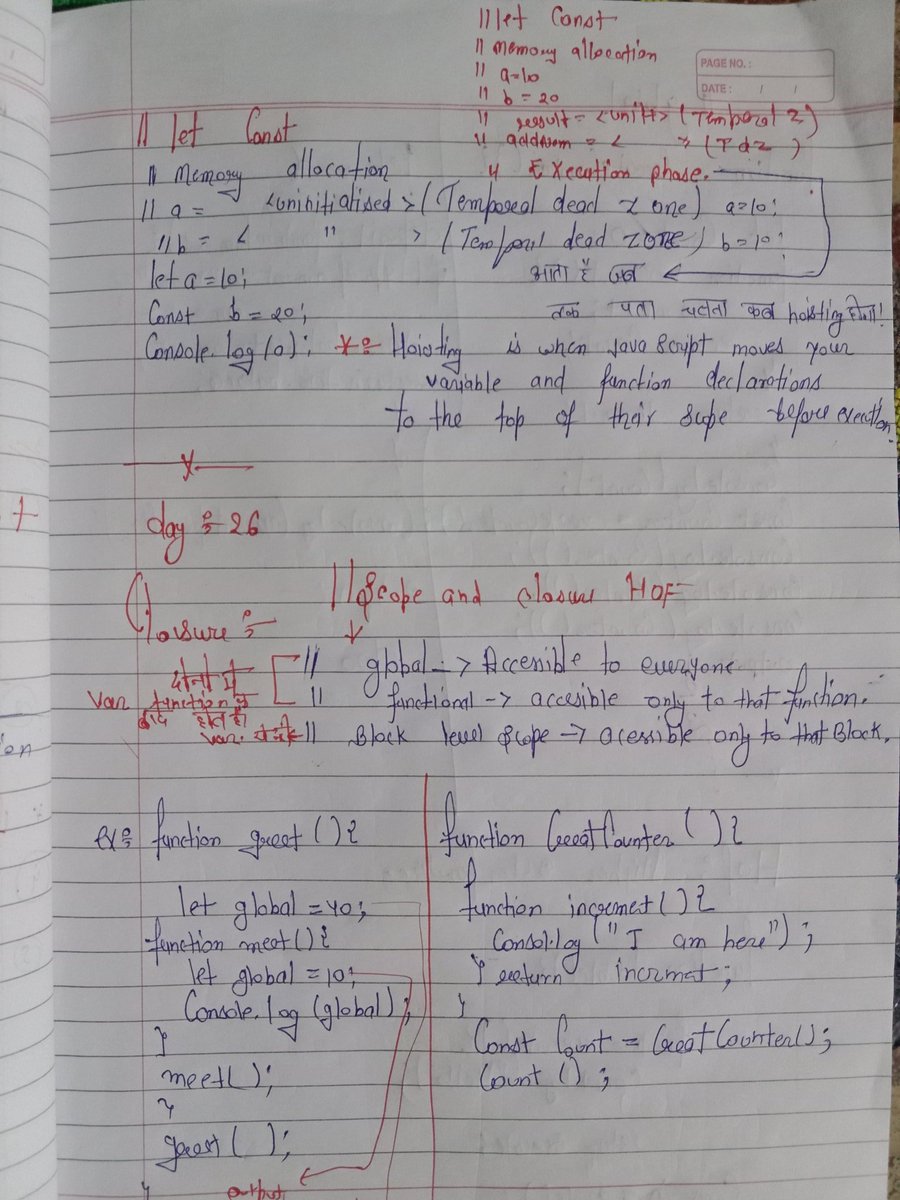 //let Const
// memory allocation
// a=10
// b = 20
// result = <unit> (Temporal z)
// addnum = < > (Tdz )
// Execution phase.
PAGE NO. :
DATE : / /
// let Const
// memory allocation
// a = <uninitialised> (Temporal dead zone) a=10;
// b = < " > (Temporal dead zone) b=10;
let a=10;
आता है जब
Const b = 20;
तक पता चलता कब hoisting होता!
Console.log(a); Hoisting is when JavaScript moves your
variable and function declarations
to the top of their scope before execution.
day 26
// Scope and closure HOF
Closure
// global -> Accesible to everyone
दोनो मे
var function के
// functional -> accesible only to that function.
होता है।
var
// Block level scope -> acessible only to that Block.
ex function greet (){
let global = 40;
function meet(){
let global = 10;
Console.log (global);
}
meet();
}
greet ( );
output
function CreatCounter ( ){
function incremet(){
Consol.log ("I am here");
} return incremet;
}
Const Count = CreatCounter();
Count () ;